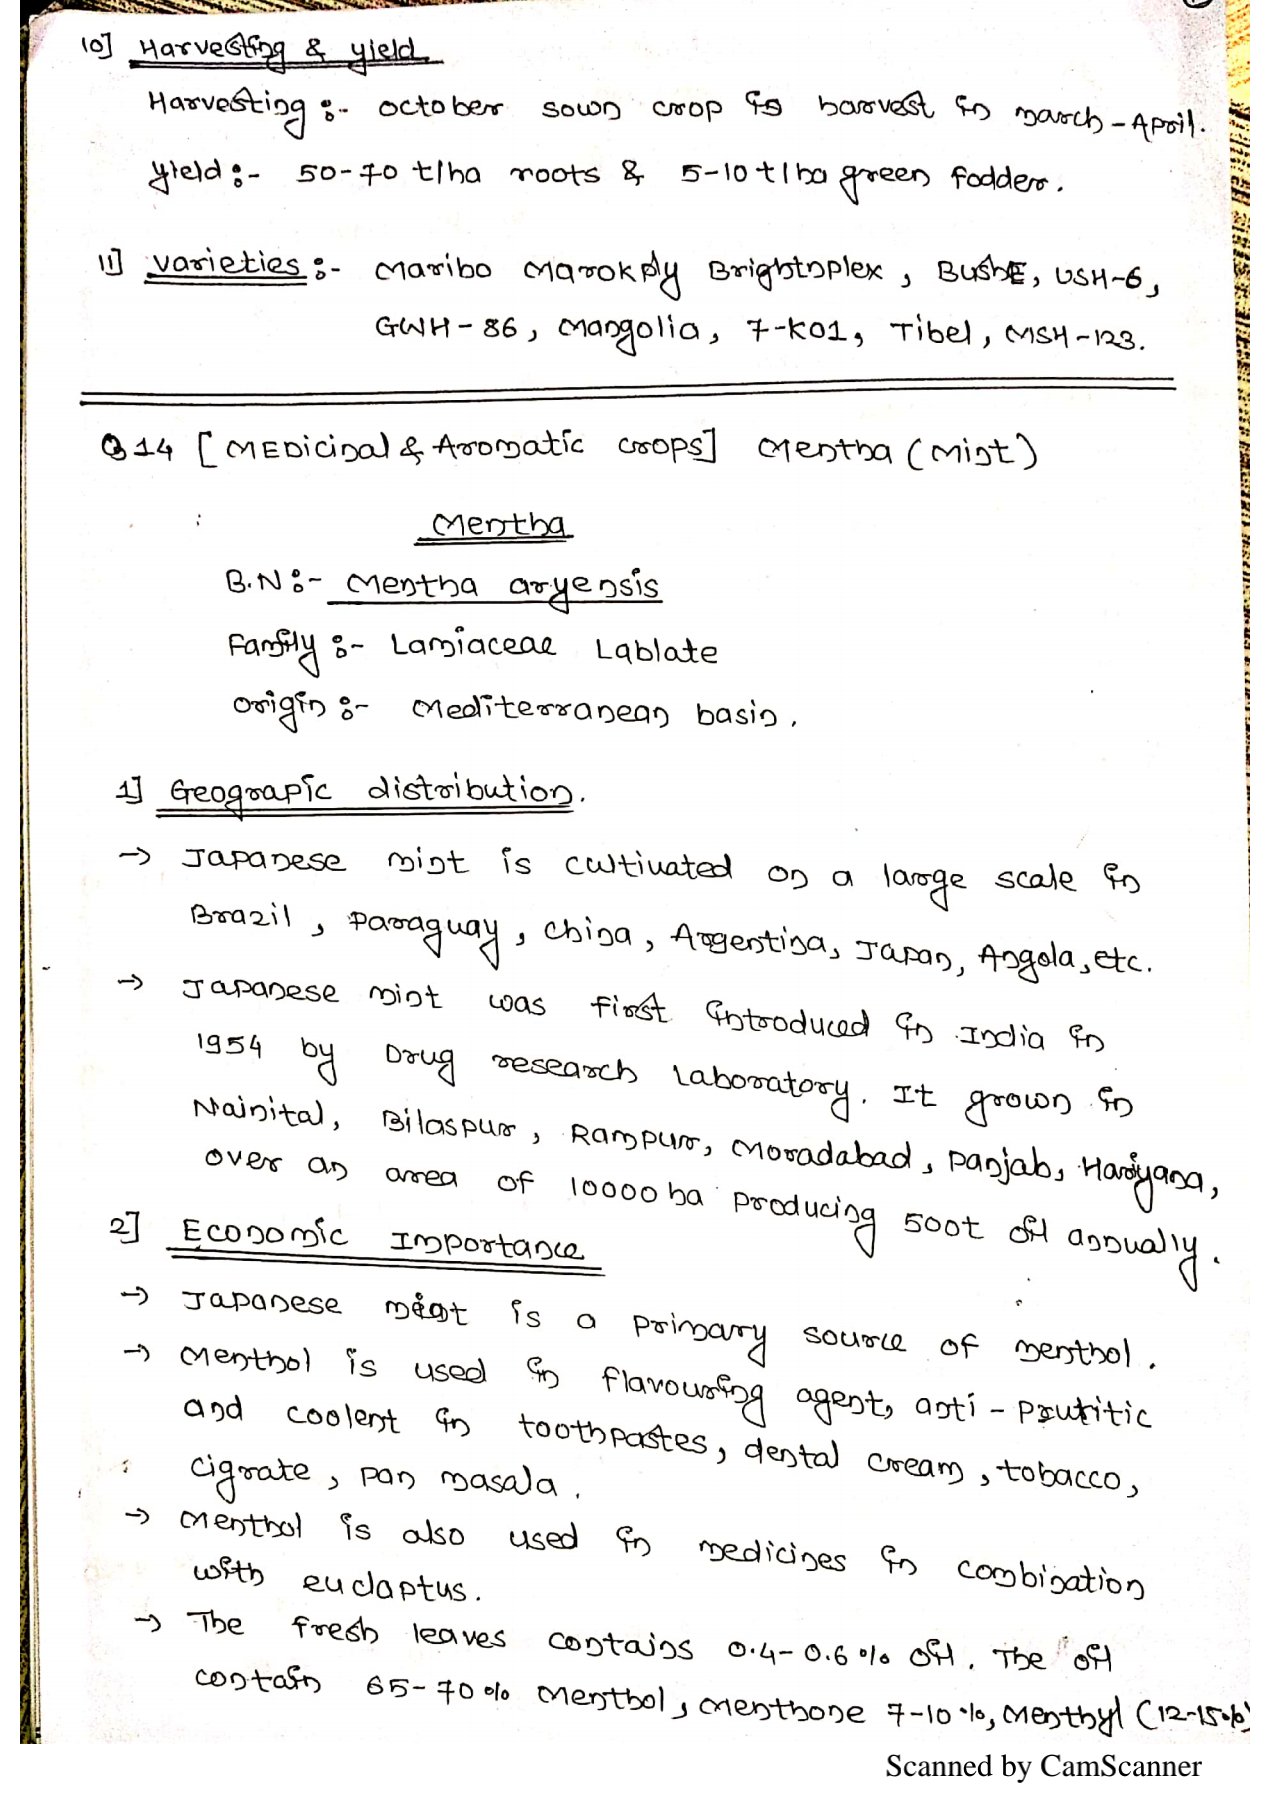 10] Harvesting & yield
Harvesting :- october sown crop is harvest in march - April.
yield :- 50-70 t/ha roots & 5-10 t/ha green fodder.
11] varieties :- Maribo Marokply Brightnplex, BushE, USH-6,
GWH-86, Mangolia, 7-K01, Tibel, MSH-123.
Q14 [MEDicinal & Aromatic crops] Mentha (Mint)
Mentha
B.N :- Mentha aryensis
Family :- Lamiaceae Lablate
origin :- Mediterranean basin.
1] Geograpic distribution.
→ Japanese mint is cultivated on a large scale in
Brazil, Paraguay, china, Argentina, Japan, Angola, etc.
→ Japanese mint was first introduced in India in
1954 by Drug research Laboratory. It grown in
Nainital, Bilaspur, Rampur, Moradabad, Panjab, Hariyana,
over an area of 10000 ha producing 500t oil annually.
2] Economic Importance
→ Japanese mint is a primary source of menthol.
→ Menthol is used in flavouring agent, anti - prutitic
and coolent in toothpastes, dental cream, tobacco,
cigrate, pan masala.
→ Menthol is also used in medicines in combination
with euclaptus.
→ The fresh leaves contains 0.4-0.6% oil. The oil
contain 65-70% Menthol, Menthone 7-10%, Menthyl (12-15%)
Scanned by CamScanner